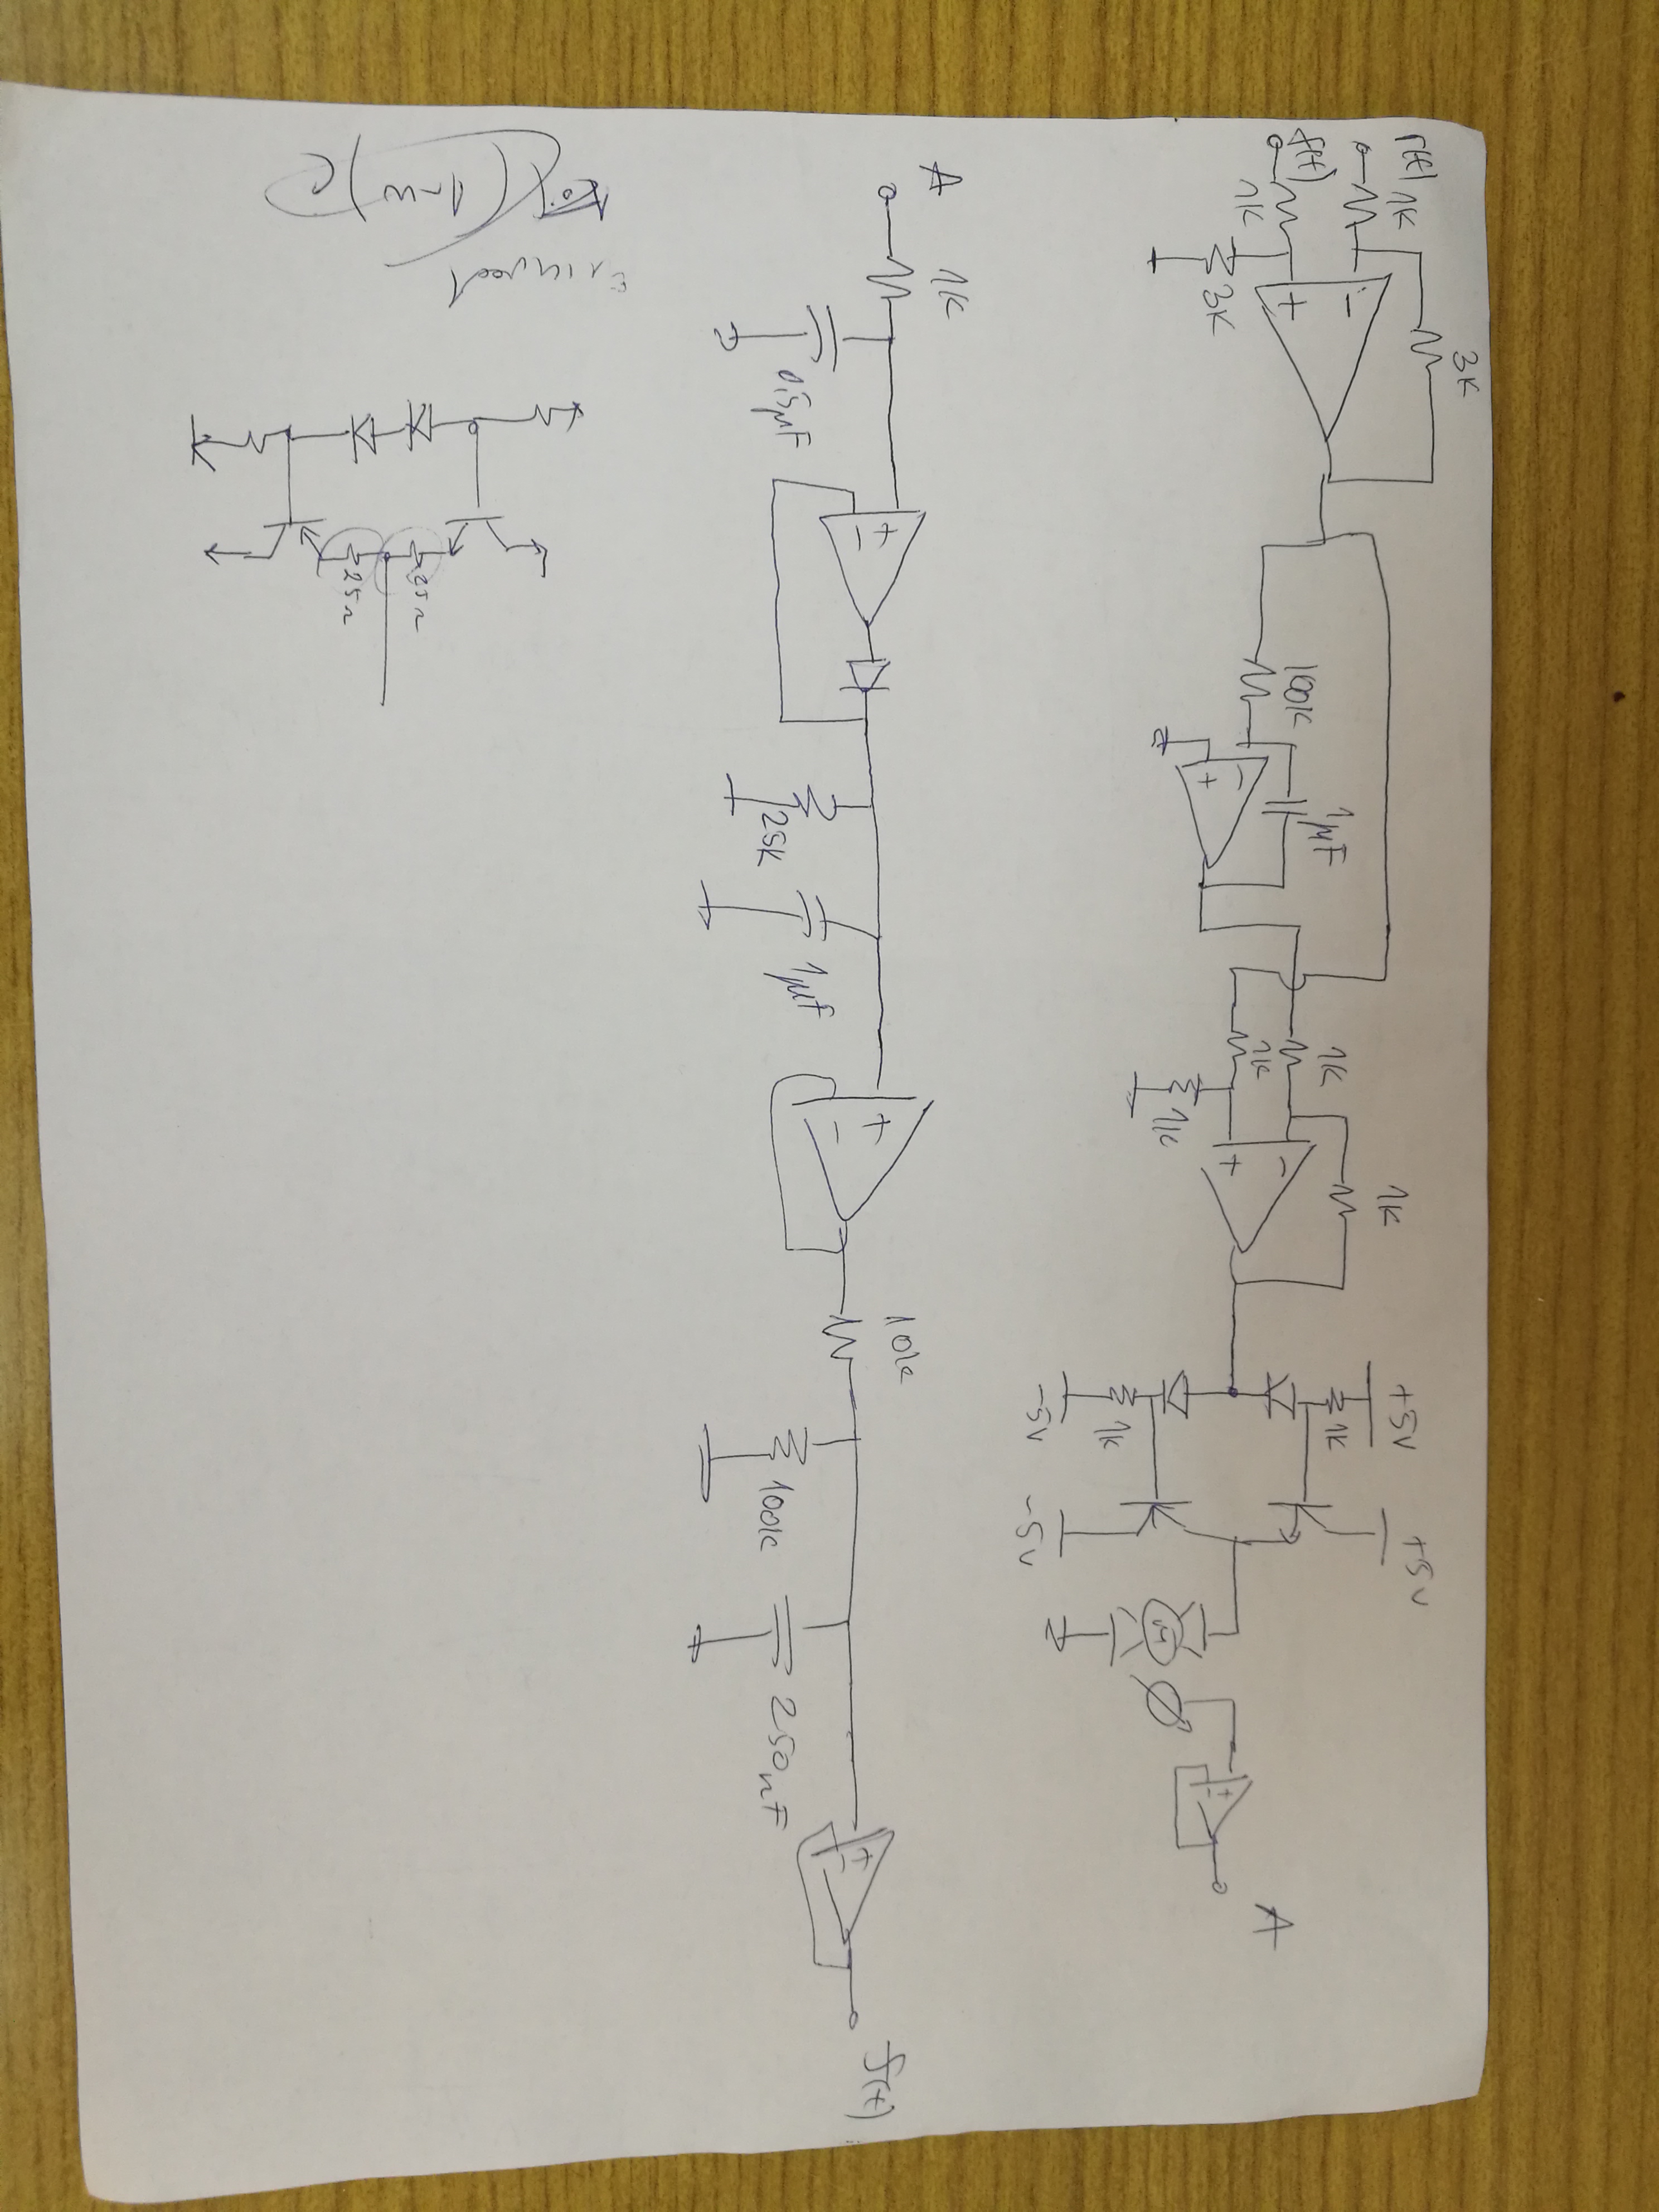 3K
r(t) 1K
-
f(t)
+
1K
3K
100K
1µF
-
+
1K
1K
1K
1K
-
+
+5V
1K
1K
-5V
+5V
-5V
M
+
-
A
A
1K
0,5µF
+
-
25K
1µF
+
-
10K
100K
250nF
+
-
f(t)
25Ω
25Ω